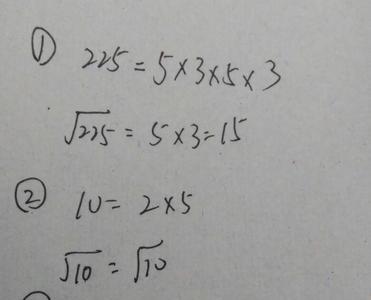 ① 225 = 5×3×5×3
√225 = 5×3=15
② 10= 2×5
√10 = √10